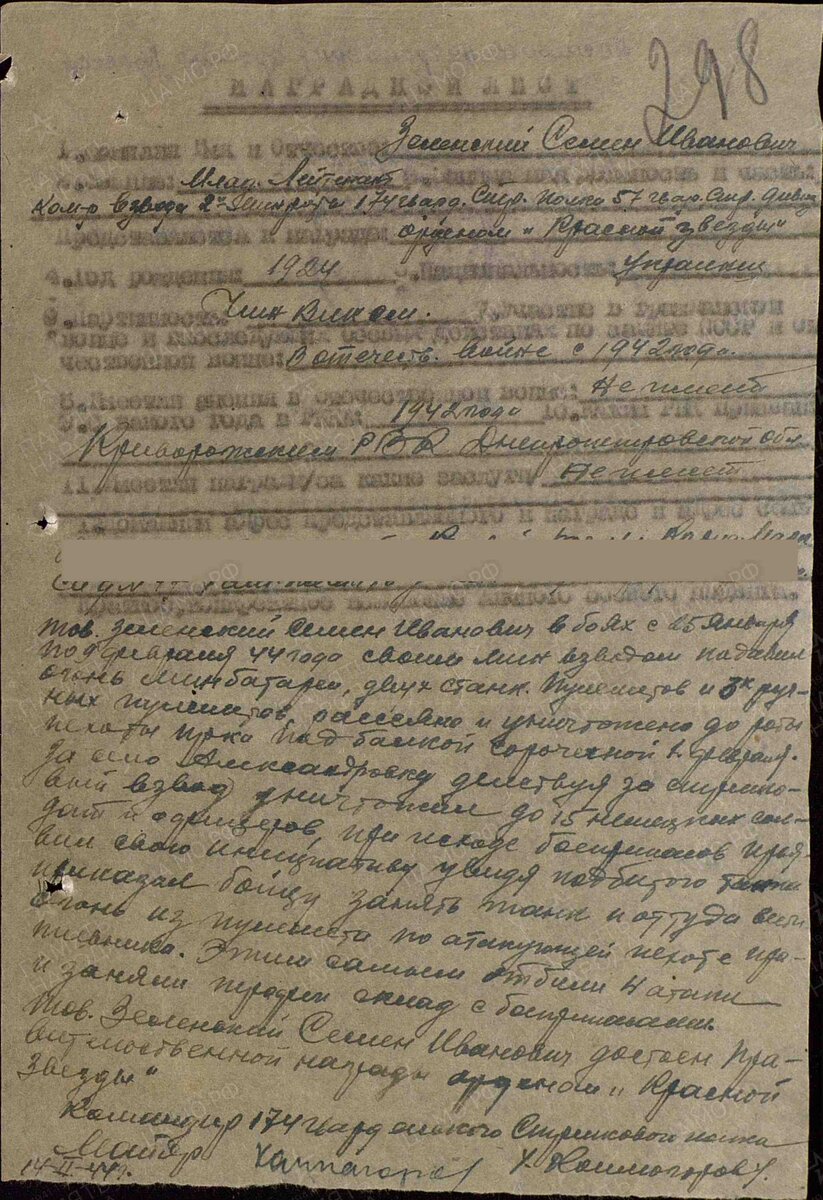 298
НАГРАДНОЙ ЛИСТ
1. Фамилия Имя и Отчество Зеленский Семен Иванович
Млад. Лейтенант
Ком-р взвода 2й Минроты 174 гвард. Стр. полка 57 гвар. Стр. дивиз
Представляется к награде орденом "Красной звезды"
4. Год рождения: 1924 5. Национальность: Украинец
6. Партийность: Член ВЛКСМ. 7. Участие в гражданской
войне и последующих боевых действиях по защите СССР и от
чественной войне: В отечеств. войне с 1942 года.
8. Имеет ли ранения в отечественной войне: Не имеет
9. С какого года в РККА: 1942 года 10. Каким РВК призван
Криворожским РВК Днепропетровской обл.
11. Имеет ли награды /за какие заслуги/ Не имеет
тов. Зеленский Семен Иванович в боях с 25 января
по 9 февраля 44 года своим мин взводом подавил
огонь минбатареи, двух станк. пулеметов и 3х руч-
ных пулеметов, рассеяно и уничтожено до роты
пехоты пр-ка под балкой Сорочечной 2 февраля.
За село Александровку действуя за стрелко-
вый взвод уничтожил до 15 немецких сол-
дат и офицеров, при исходе боеприпасов проя-
вил свою инициативу увидя подбитого танка
приказал бойцу занять танк и оттуда вести
огонь из пулемета по атакующей пехоте про-
тивника. Этим самым отбили 4 атаки
и заняли трофеи склад с боеприпасами.
Тов. Зеленский Семен Иванович достоен пра-
вительственной награды орденом "Красной
Звезды"
Командир 174 Гвардейского Стрелкового полка
Майор
14-II-44г.